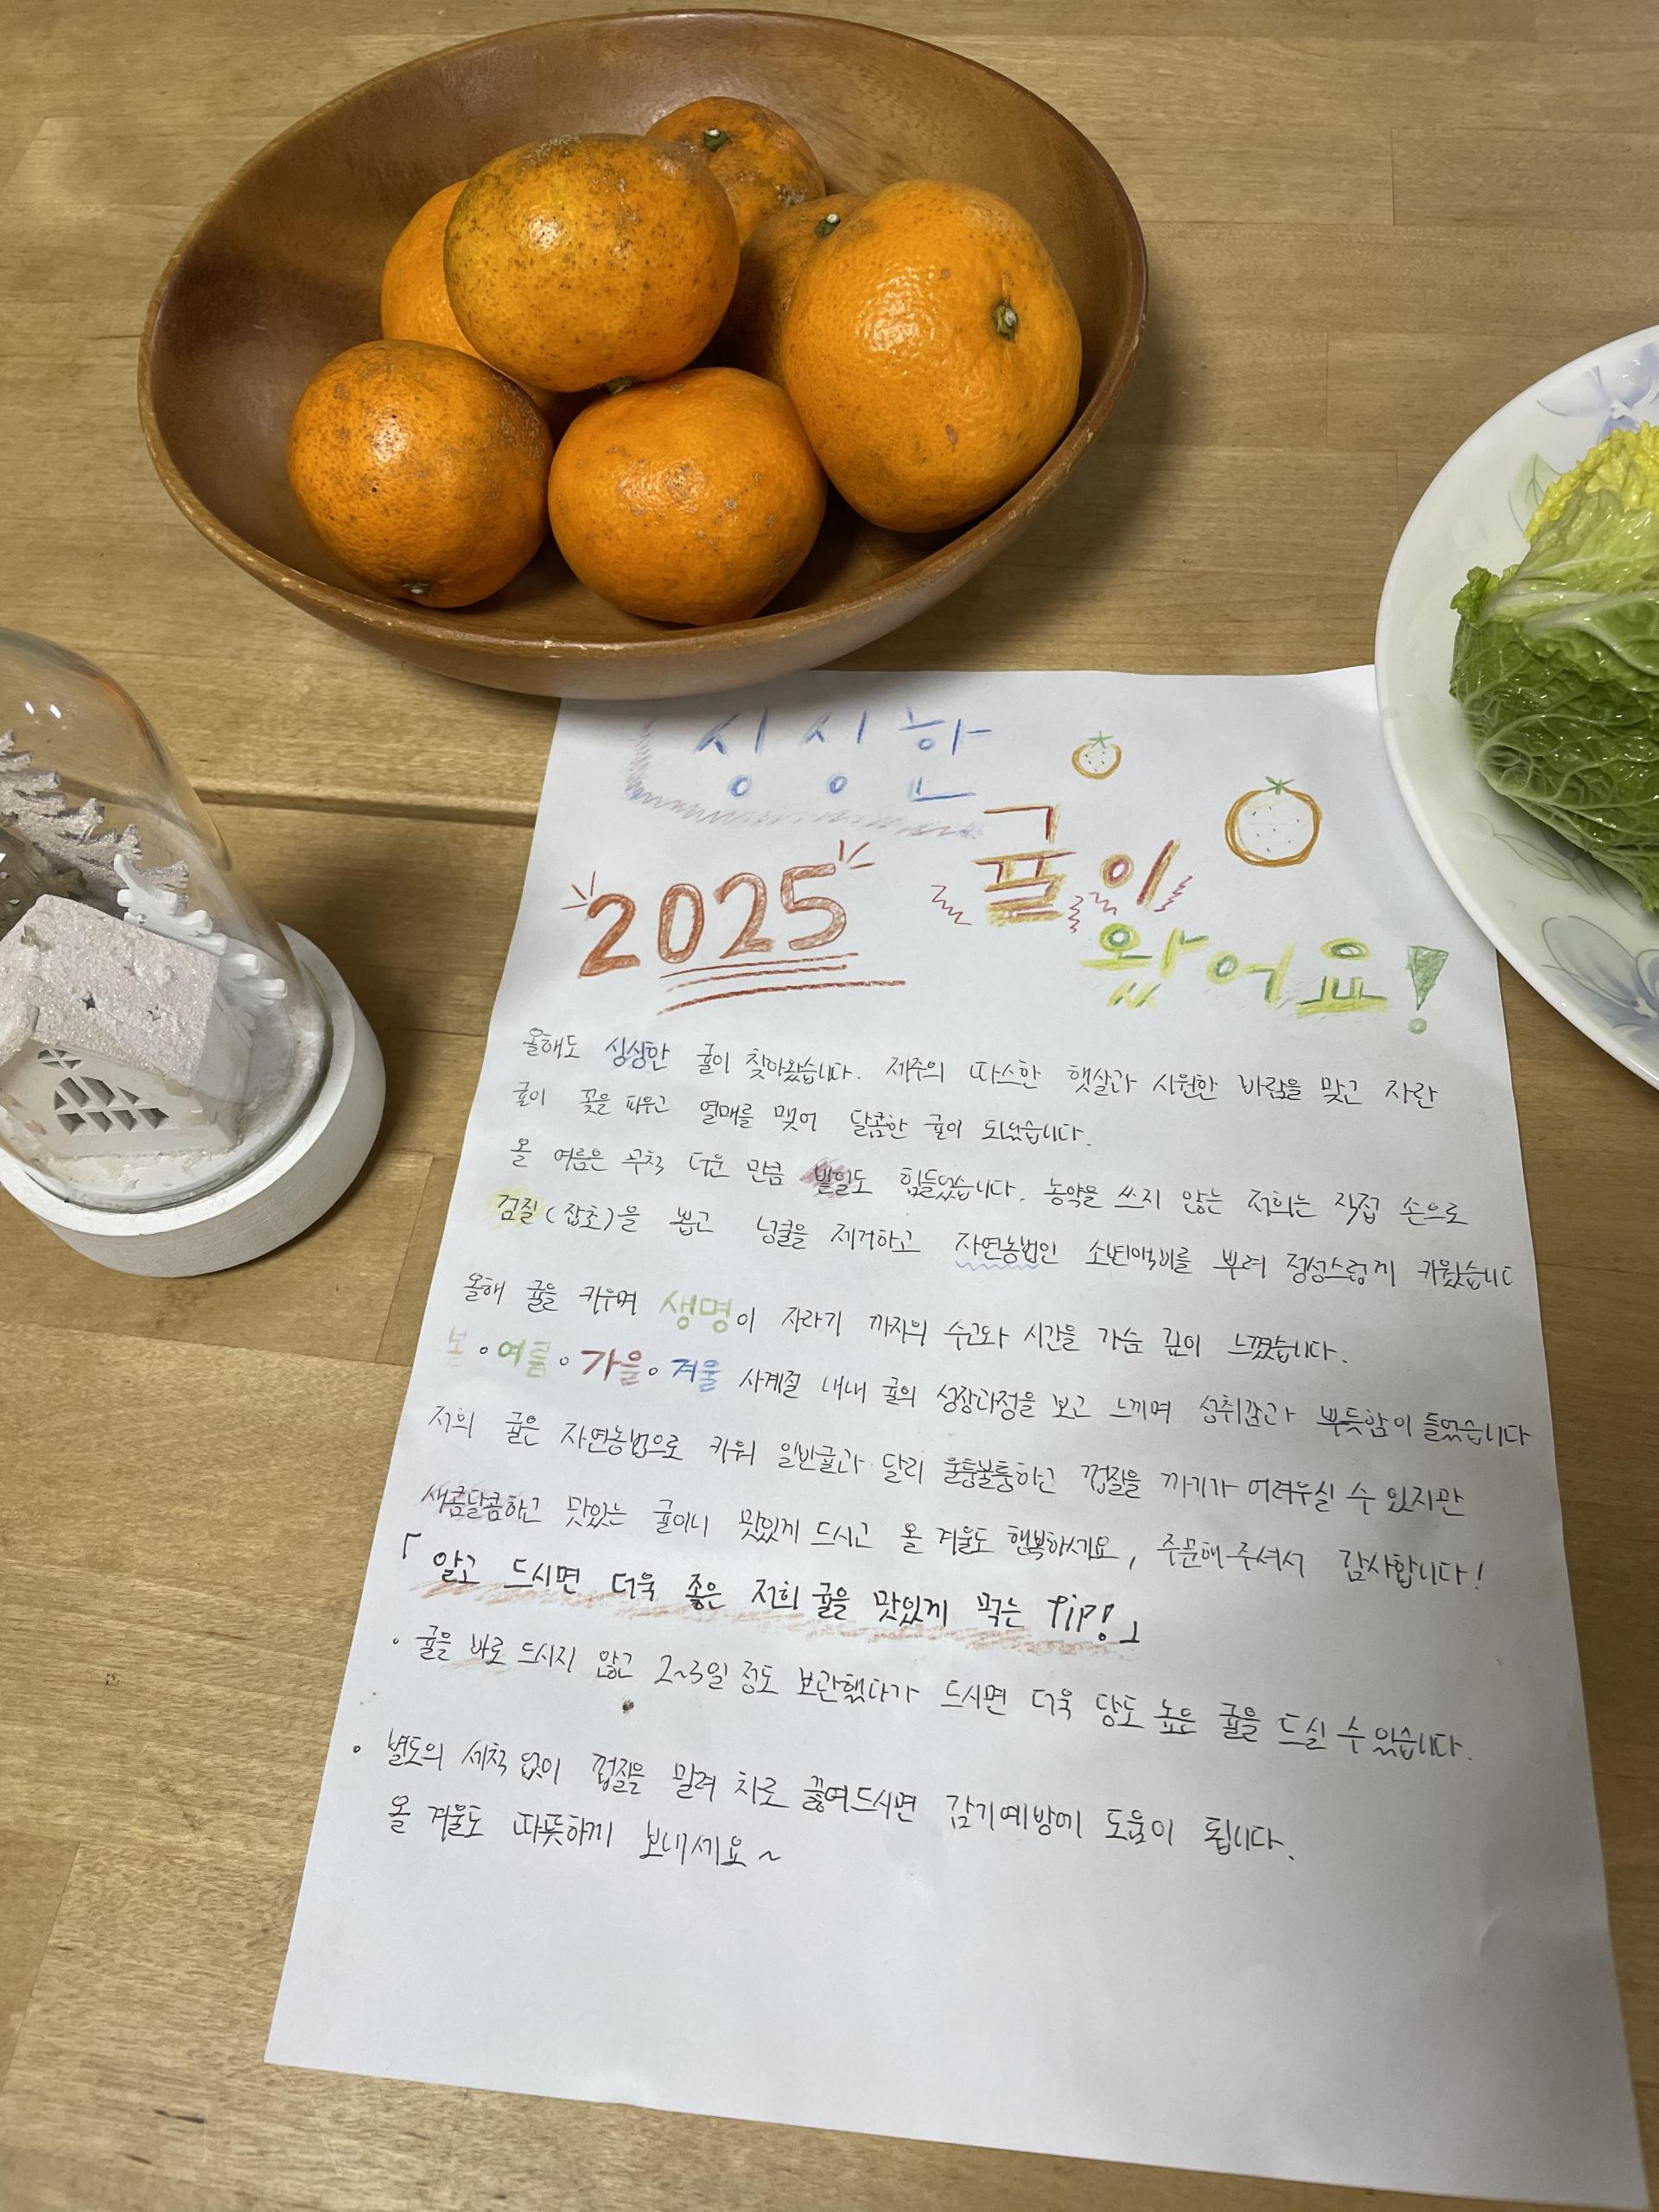 싱싱한
2025
귤이
왔어요!
올해도 싱싱한 귤이 찾아왔습니다. 제주의 따스한 햇살과 시원한 바람을 맞고 자란
귤이 꽃을 피우고 열매를 맺어 달콤한 귤이 되었습니다.
올 여름은 무척 더운 만큼 밭일도 힘들었습니다. 농약을 쓰지 않는 저희는 직접 손으로
검질(잡초)을 뽑고 넝쿨을 제거하고 자연농법인 소변액비를 뿌려 정성스럽게 키웠습니다
올해 귤을 키우며 생명이 자라기 까지의 수고와 시간을 가슴 깊이 느꼈습니다.
봄。여름。가을。겨울 사계절 내내 귤의 성장과정을 보고 느끼며 성취감과 뿌듯함이 들었습니다
저희 귤은 자연농법으로 키워 일반귤과 달리 울퉁불퉁하고 껍질을 까기가 어려우실 수 있지만
새콤달콤하고 맛있는 귤이니 맛있게 드시고 올 겨울도 행복하세요, 주문해 주셔서 감사합니다!
「알고 드시면 더욱 좋은 저희 귤을 맛있게 먹는 TiP!」
• 귤을 바로 드시지 않고 2~3일 정도 보관했다가 드시면 더욱 당도 높은 귤을 드실 수 있습니다.
• 별도의 세척 없이 껍질을 말려 차로 끓여드시면 감기예방에 도움이 됩니다.
올 겨울도 따뜻하게 보내세요~